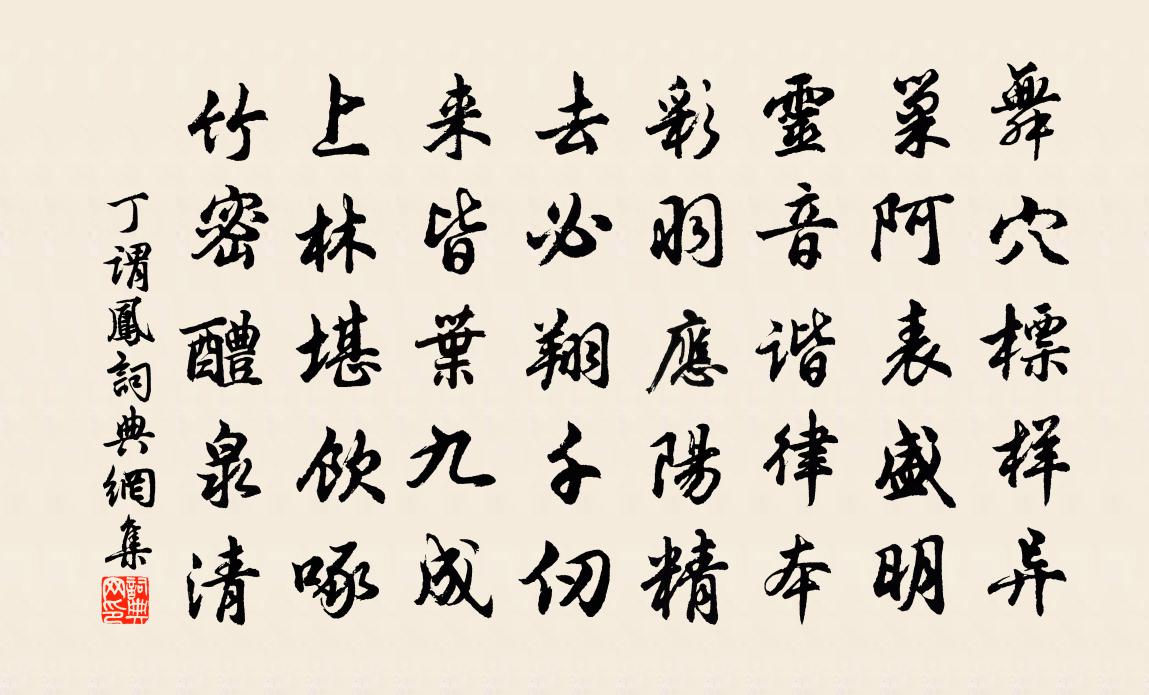 舞穴標样异
巢阿表盛明
靈音谐律本
彩羽應陽精
去必翔千仞
来皆葉九成
上林堪飲啄
竹密醴泉清
丁谓鳳詞典網集
詞典